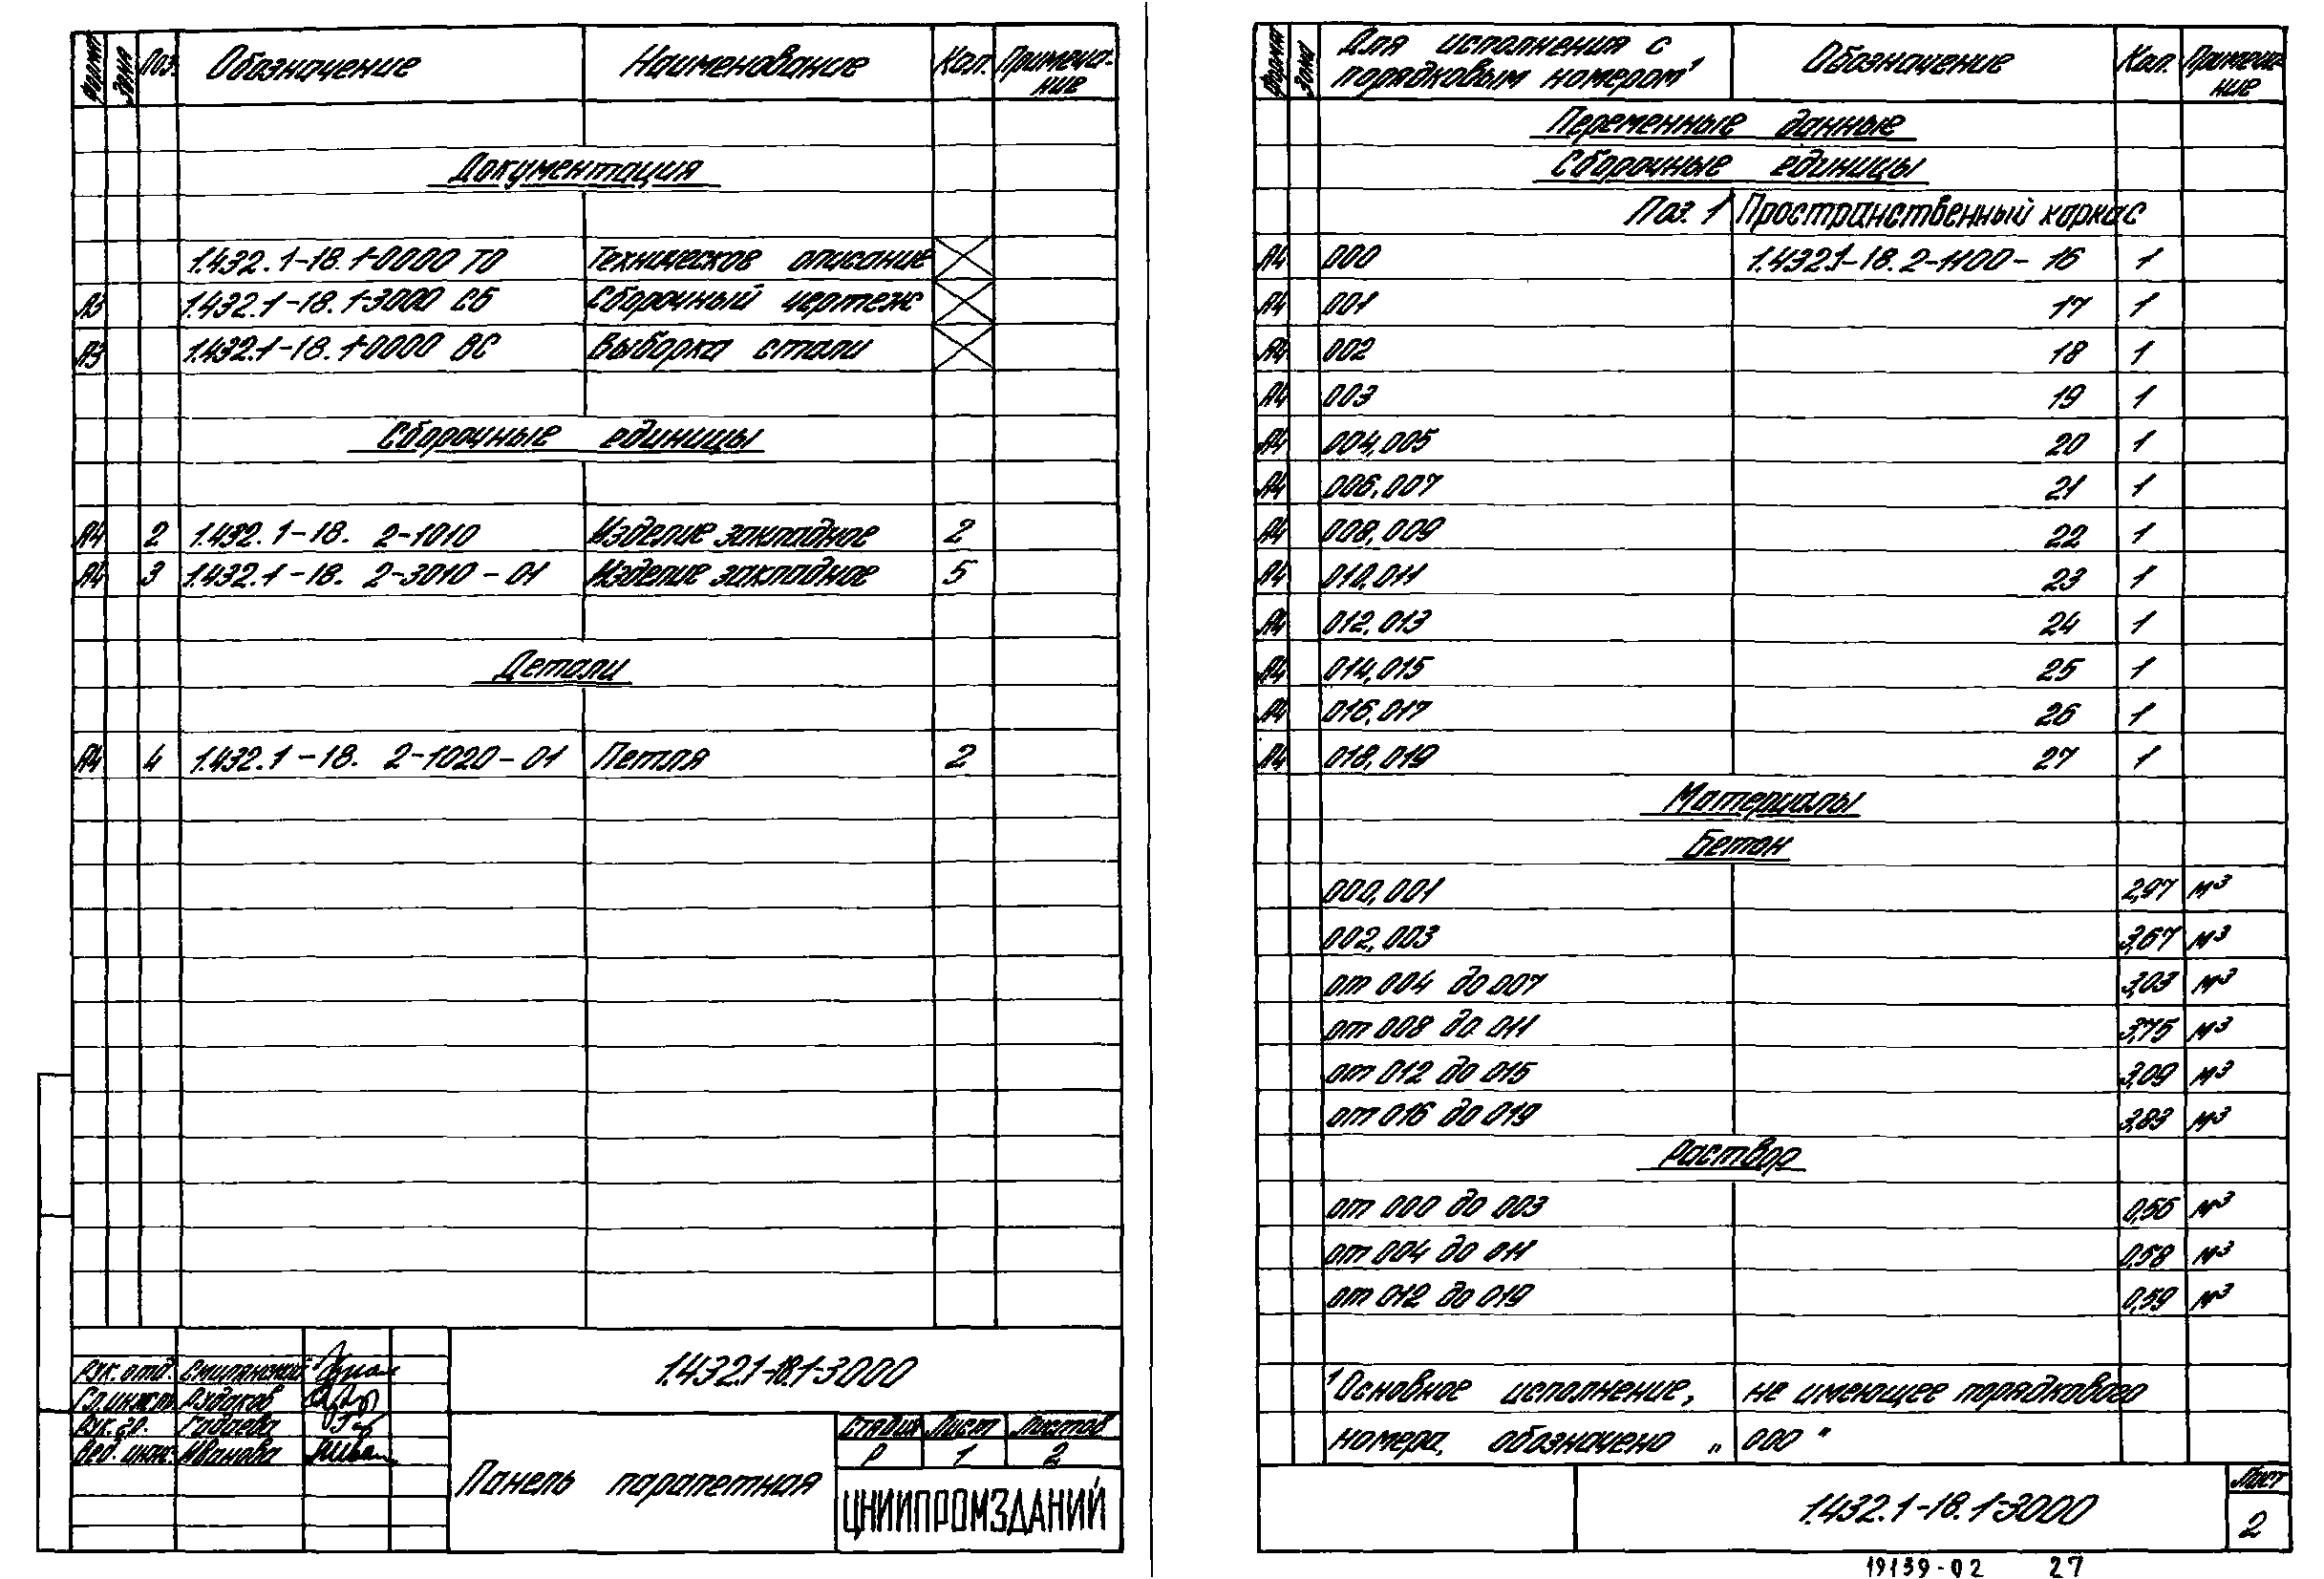 Формат Зона Поз. Обозначение Наименование Кол. Примеча-
ние
Документация
1.432.1-18.1-0000 ТО Техническое описание
А3 1.432.1-18.1-3000 СБ Сборочный чертеж
А3 1.432.1-18.1-0000 ВС Выборка стали
Сборочные единицы
А4 2 1.432.1-18. 2-1010 Изделие закладное 2
А4 3 1.432.1-18. 2-3010-01 Изделие закладное 5
Детали
А4 4 1.432.1-18. 2-1020-01 Петля 2
Рук. отд. Смилянский
Гл. инж. пр.
Рук. гр. Гадаева
Вед. инж. Иванова
1.432.1-18.1-3000
Панель парапетная
Стадия Лист Листов
Р 1 2
ЦНИИПРОМЗДАНИЙ
Формат Зона Для исполнения с Обозначение Кол. Примеча-
порядковым номером¹ ние
Переменные данные
Сборочные единицы
Поз. 1 Пространственный каркас
А4 000 1.432.1-18.2-1100- 16 1
А4 001 17 1
А4 002 18 1
А4 003 19 1
А4 004,005 20 1
А4 006,007 21 1
А4 008,009 22 1
А4 010,011 23 1
А4 012,013 24 1
А4 014,015 25 1
А4 016,017 26 1
А4 018,019 27 1
Материалы
Бетон
000,001 2,97 м³
002,003 3,67 м³
от 004 до 007 3,03 м³
от 008 до 011 3,75 м³
от 012 до 015 3,09 м³
от 016 до 019 3,83 м³
Раствор
от 000 до 003 0,56 м³
от 004 до 011 0,58 м³
от 012 до 019 0,59 м³
¹Основное исполнение, не имеющее порядкового
номера, обозначено „ 000 "
1.432.1-18.1-3000
Лист
2
19139-02 27